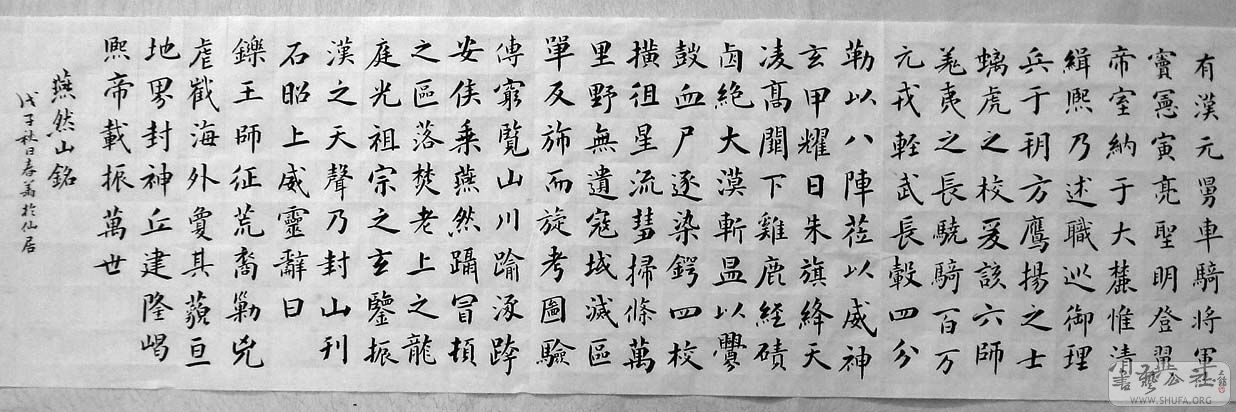 有漢元舅車騎將軍
竇憲寅亮聖明登翼
帝室納于大麓惟清
緝熙乃述職巡御理
兵于朔方鷹揚之士
螭虎之校爰該六師
羗夷之長驍騎百万
元戎軽武長轂四分
勒以八陣蒞以威神
玄甲耀日朱旗絳天
凌髙闕下雞鹿經磧
鹵絶大漠斬昷以釁
鼓血尸逐染鍔四校
横徂星流彗掃條萬
里野無遺寇域滅區
單反斾而旋考圖驗
傳窮覽山川踰涿跨
安侯乗燕然躡冒頓
之區落焚老上之龍
庭光祖宗之玄鑒振
漢之天聲乃封山刊
石昭上威靈辭曰
鑠王師征荒裔勦兇
虐截海外敻其藐亘
地界封神丘建隆嵑
熙帝載振萬世
燕然山銘
戊子秋日春萬於仙居
書藝公社
WWW.SHUFA.ORG